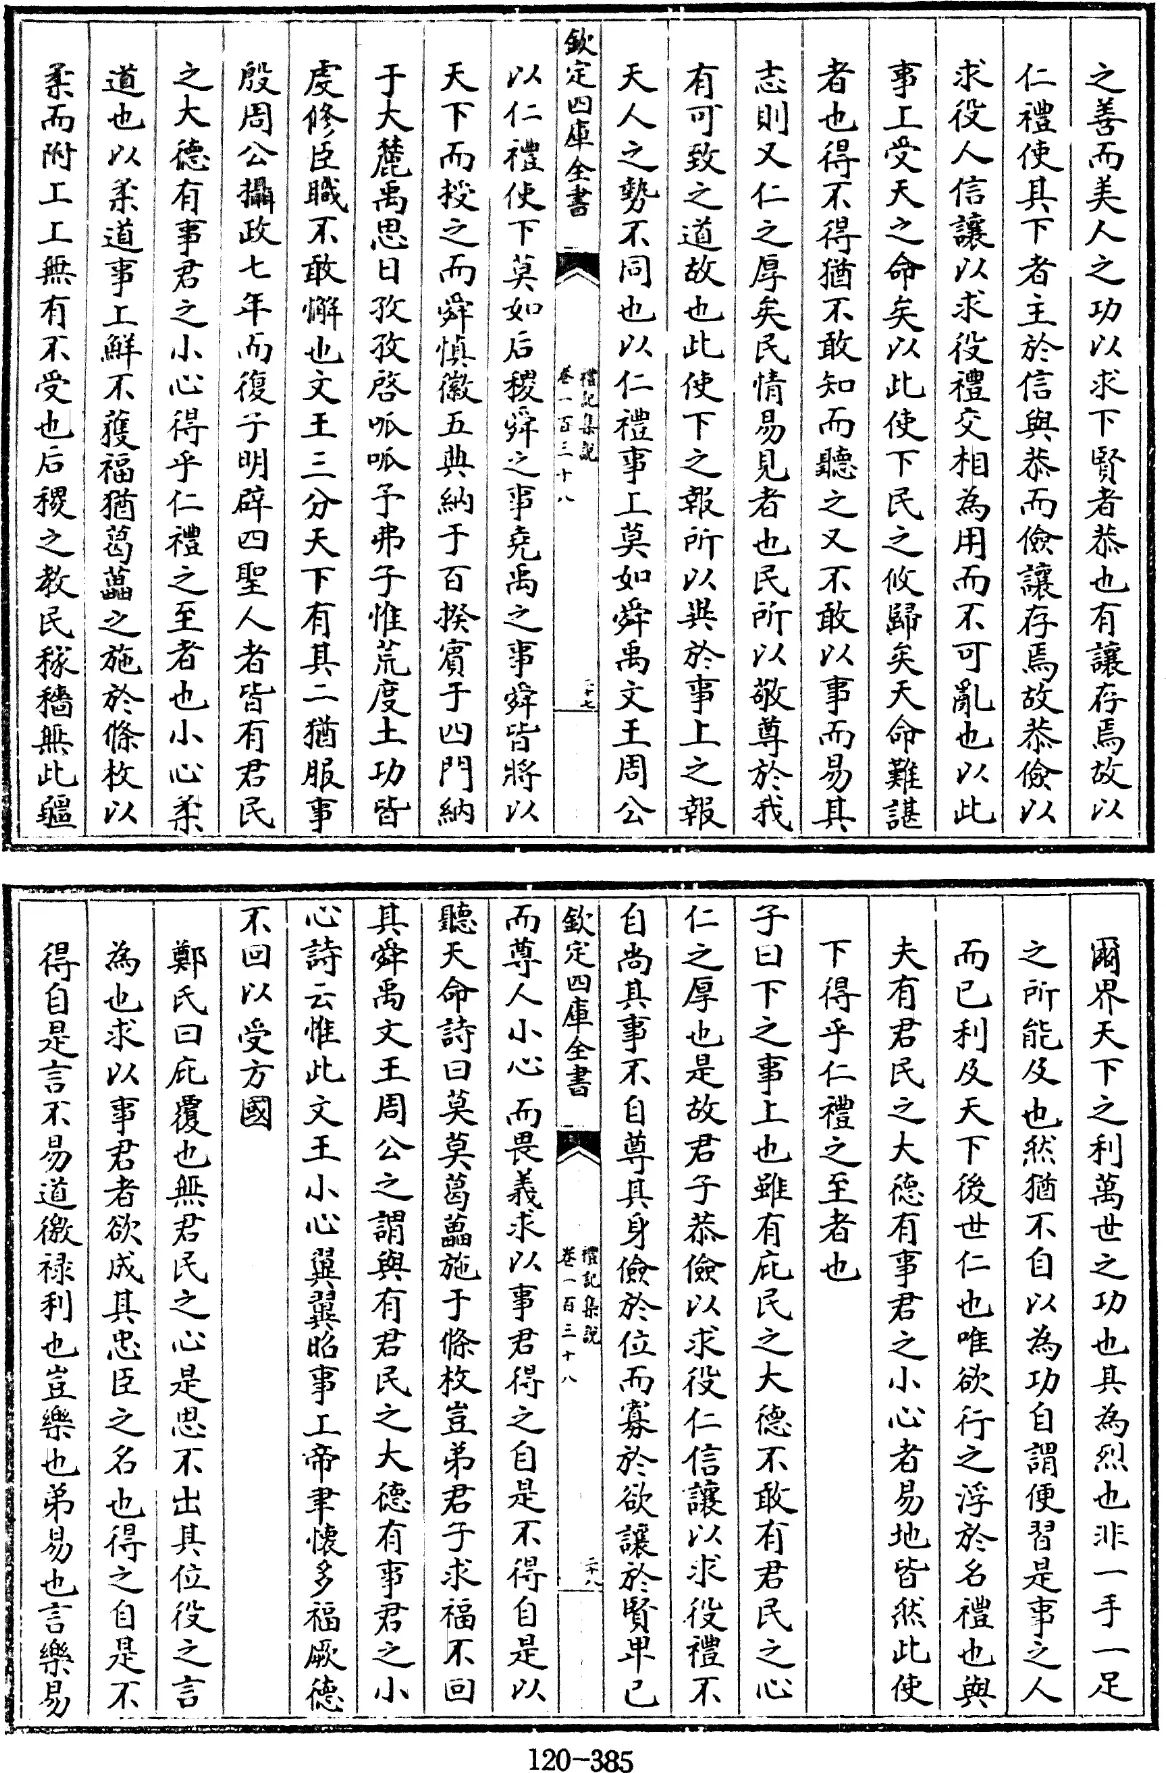 之善而美人之功以求下賢者恭也有讓存焉故以
仁禮使其下者主於信與恭而儉讓存焉故恭儉以
求役人信讓以求役禮交相為用而不可亂也以此
事上受天之命矣以此使下民之攸歸矣天命難諶
者也得不得猶不敢知而聽之又不敢以事而易其
志則又仁之厚矣民情易見者也民所以敬尊於我
有可致之道故也此使下之報所以異於事上之報
天人之勢不同也以仁禮事上莫如舜禹文王周公
欽定四庫全書
禮記集說
卷一百三十八
二十七
以仁禮使下莫如后稷舜之事堯禹之事舜皆將以
天下而授之而舜慎徽五典納于百揆賓于四門納
于大麓禹思日孜孜啓呱呱予弗子惟荒度土功皆
虔修臣職不敢懈也文王三分天下有其二猶服事
殷周公攝政七年而復子明辟四聖人者皆有君民
之大德有事君之小心得乎仁禮之至者也小心柔
道也以柔道事上鮮不獲福猶葛藟之施於條枚以
柔而附上上無有不受也后稷之教民稼穡無此疆
爾界天下之利萬世之功也其為烈也非一手一足
之所能及也然猶不自以為功自謂便習是事之人
而已利及天下後世仁也唯欲行之浮於名禮也與
夫有君民之大德有事君之小心者易地皆然此使
下得乎仁禮之至者也
子曰下之事上也雖有庇民之大德不敢有君民之心
仁之厚也是故君子恭儉以求役仁信讓以求役禮不
自尚其事不自尊其身儉於位而寡於欲讓於賢卑己
欽定四庫全書
禮記集說
卷一百三十八
二十八
而尊人小心而畏義求以事君得之自是不得自是以
聽天命詩曰莫莫葛藟施于條枚豈弟君子求福不回
其舜禹文王周公之謂與有君民之大德有事君之小
心詩云惟此文王小心翼翼昭事上帝聿懷多福厥德
不回以受方國
鄭氏曰庇覆也無君民之心是思不出其位役之言
為也求以事君者欲成其忠臣之名也得之自是不
得自是言不易道徼祿利也豈樂也弟易也言樂易
120-385